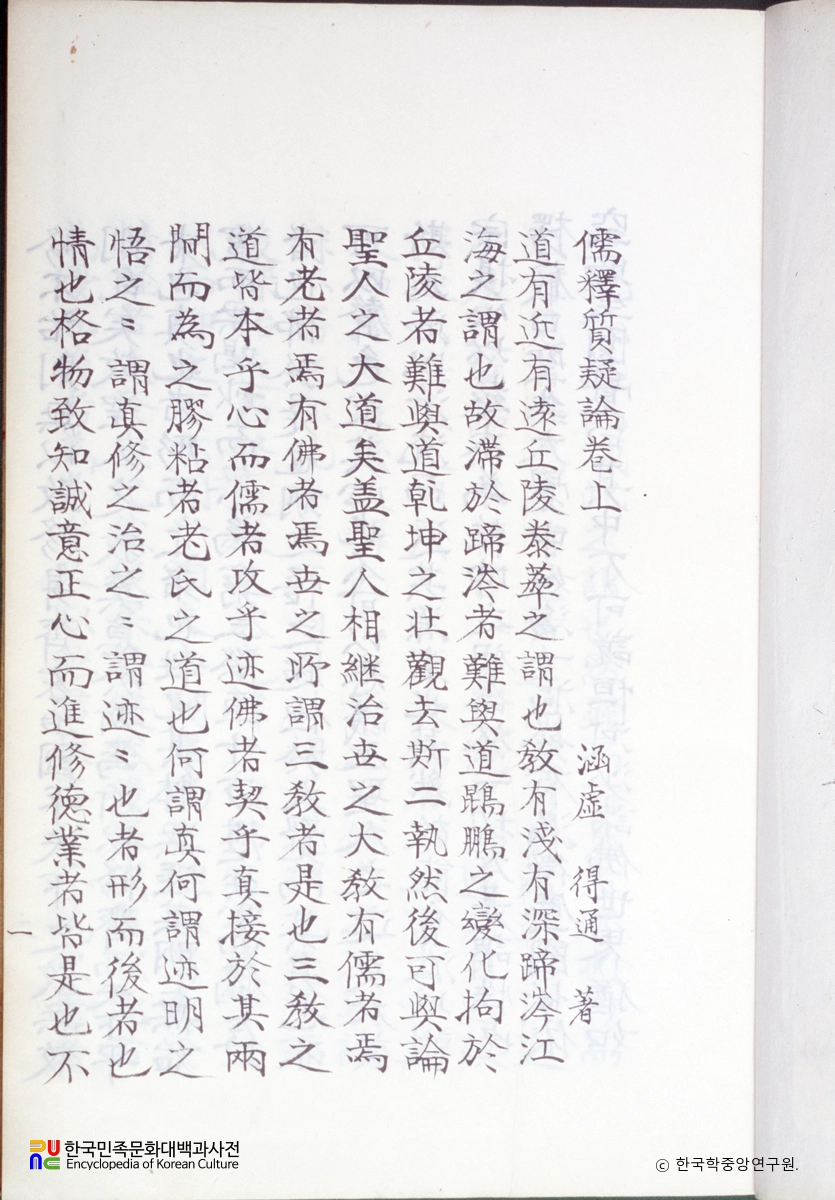 儒釋質疑論卷上
涵虛 得通 著
道有近有遠丘陵泰華之謂也教有淺有深蹄涔江
海之謂也故滯於蹄涔者難與道鵾鵬之變化拘於
丘陵者難與道乾坤之壯觀去斯二執然後可與論
聖人之大道矣盖聖人相継治世之大教有儒者焉
有老者焉有佛者焉世之所謂三教者是也三教之
道皆本乎心而儒者攻乎迹佛者契乎真接於其兩
間而為之膠粘者老氏之道也何謂真何謂迹明之
悟之〻謂真修之治之〻謂迹〻也者形而後者也
情也格物致知誠意正心而進修徳業者皆是也不
一
한국민족문화대백과사전
Encyclopedia of Korean Culture
© 한국학중앙연구원.